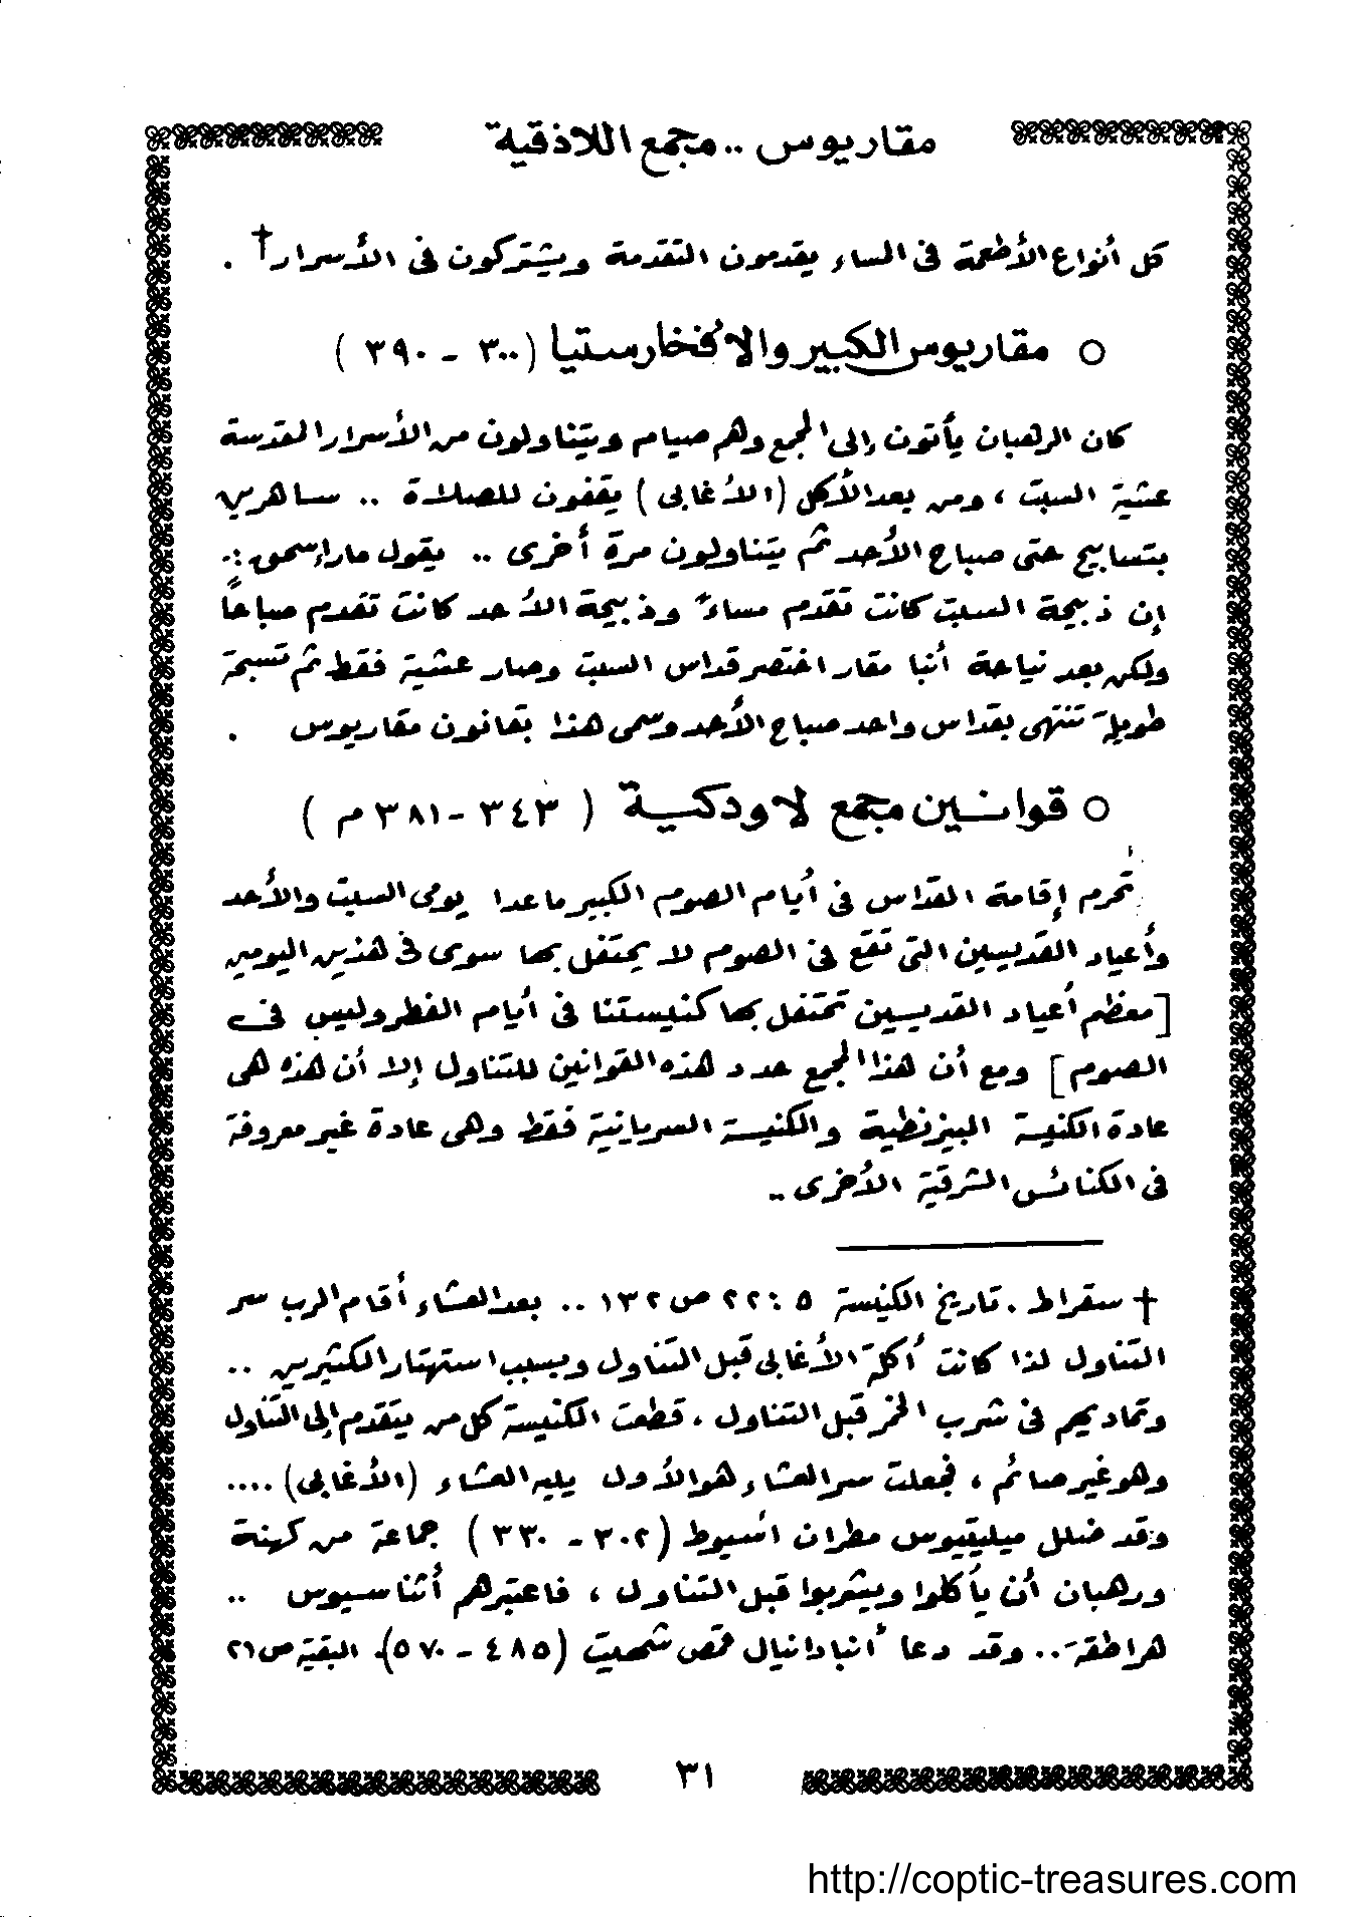 مقاريوس .. مجمع اللاذقية
كل أنواع الأطعمة فى المساء يقدمون التقدمة ويشتركون فى الأسرار† .
○ مقاريوس الكبير والافخارستيا (٣٠٠ - ٣٩٠ )
كان الرهبان يأتون إلى المجمع وهم صيام ويتناولون من الأسرار المقدسة
عشية السبت ، ومن بعد الأكل (الأغابى ) يقفون للصلاة .. ساهرين
بتسابيح حتى صباح الأحد ثم يتناولون مرة أخرى .. يقول مارإسحق :.
إن ذبيحة السبت كانت تقدم مساءً وذبيحة الأحد كانت تقدم صباحاً
ولكن بعد نياحة أنبا مقار اختصر قداس السبت وصار عشية فقط ثم تسبحة
طويلة تنتهى بقداس واحد صباح الأحد وسمى هذا بقانون مقاريوس .
○ قوانين مجمع لاودكية ( ٣٤٣ - ٣٨١ م )
تحرم إقامة القداس فى أيام الصوم الكبير ماعدا يومى السبت والأحد
وأعياد القديسين التى تقع فى الصوم لا يحتفل بها سوى فى هذين اليومين
[معظم أعياد القديسين تحتفل بها كنيستنا فى أيام الفطر وليس فى
الصوم] ومع أن هذا المجمع حدد هذه القوانين للتناول إلا أن هذه هى
عادة الكنيسة البيزنطية والكنيسة السريانية فقط وهى عادة غير معروفة
فى الكنائس الشرقية الأخرى ..
† سقراط . تاريخ الكنيسة ٥ : ٢٢ ص ١٣٢ .. بعد العشاء أقام الرب سر
التناول لذا كانت أكلة الأغابى قبل التناول وبسبب استهتار الكثيرين ..
وتماديهم فى شرب الخمر قبل التناول ، قطعت الكنيسة كل من يتقدم إلى التناول
وهو غير صائم ، فجعلت سر العشاء هو الأول يليه العشاء (الأغابى) ....
وقد ضلل ميليتيوس مطران أسيوط (٣٠٢ - ٣٣٠ ) جماعة من كهنة
ورهبان أن يأكلوا ويشربوا قبل التناول ، فاعتبرهم أثناسيوس ..
هراطقة .. وقد دعا أنبا دانيال قمص شيهيت (٤٨٥ - ٥٧٠). البقية ص ٢٦
٣١
http://coptic-treasures.com